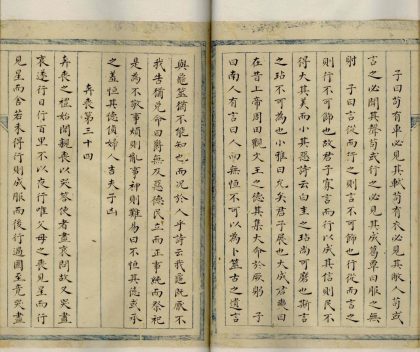 子曰苟有車必見其軾苟有衣必見其敝人苟或
言之必聞其聲苟或行之必見其成葛覃曰服之無
射 子曰言從而行之則言不可飾也行從而言之
則行不可飾也故君子寡言而行以成其信則民不
得大其美而小其惡詩云白圭之玷尚可磨也斯言
之玷不可為也小雅曰允矣君子展也大成君奭曰
在昔上帝周田觀文王之德其集大命於厥躬 子
曰南人有言曰人而無恒不可以為卜筮古之遺言
與龜筮猶不能知也而況於人乎詩云我龜既厭不
我告猶兌命曰爵無及惡德民立而正事純而祭祀
是為不敬事煩則亂事神則難易曰不恒其德或承
之羞恒其德偵婦人吉夫子凶
奔喪第三十四
奔喪之禮始聞親喪以哭答使者盡哀問故又哭盡
哀遂行日行百里不以夜行唯父母之喪見星而行
見星而舍若未得行則成服而後行過國至竟哭盡